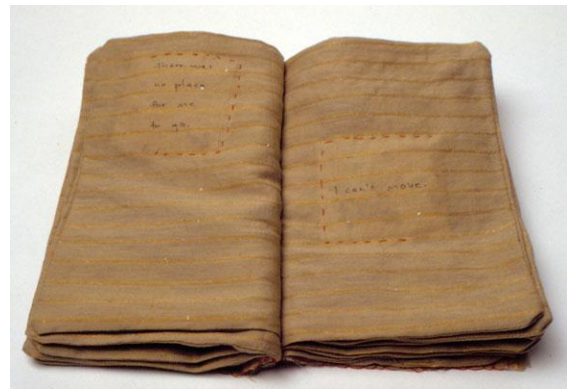 There was
no place
for me
to go.
I can't move.